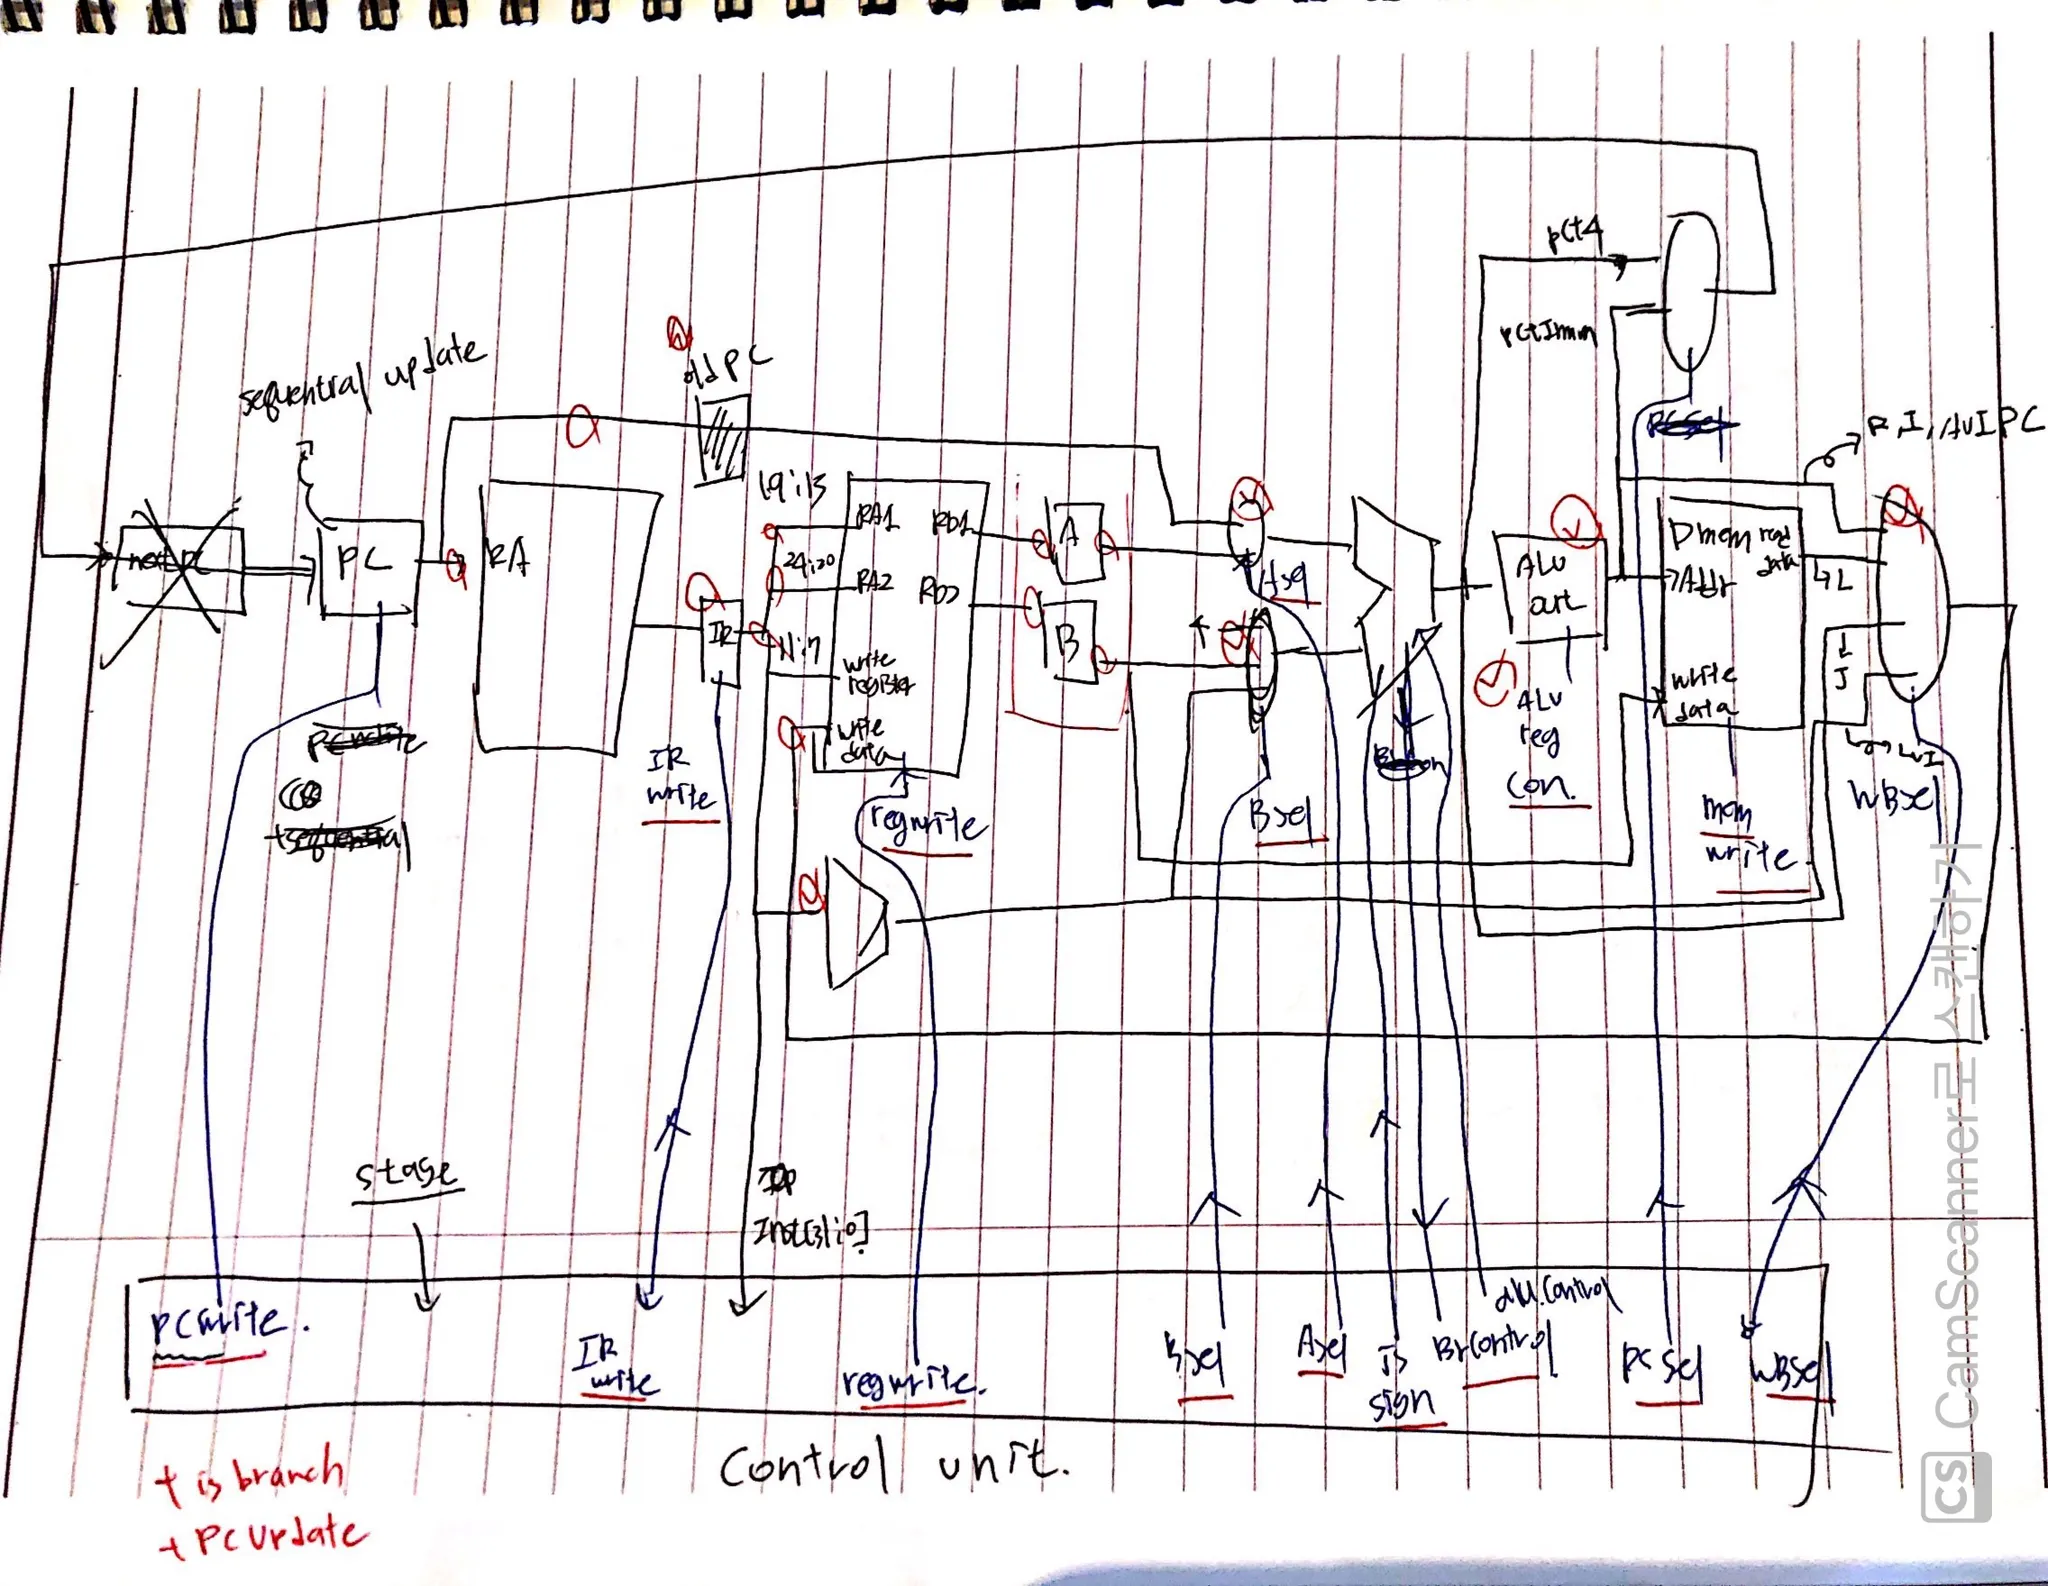 pc+4
pc+Imm
old PC
sequential update
R,I,AUIPC
next PC
PC
RA
IR
19:15
24:20
11:7
RA1
RA2
write
register
write
data
RD1
RD2
A
B
Asel
4
Bsel
ALU
out
ALU
reg
con.
Dmem
read
data
Addr
write
data
L
J
LUI
WBsel
mem
write
IR
write
regwrite
stage
Inst[31:0]
PCwrite.
IR
write
regwrite.
Bsel
Asel
is
sign
BrControl
alu.control
PC sel
WBsel
Control unit.
+ is branch
+ PC update
CS CamScanner로 스캔하기